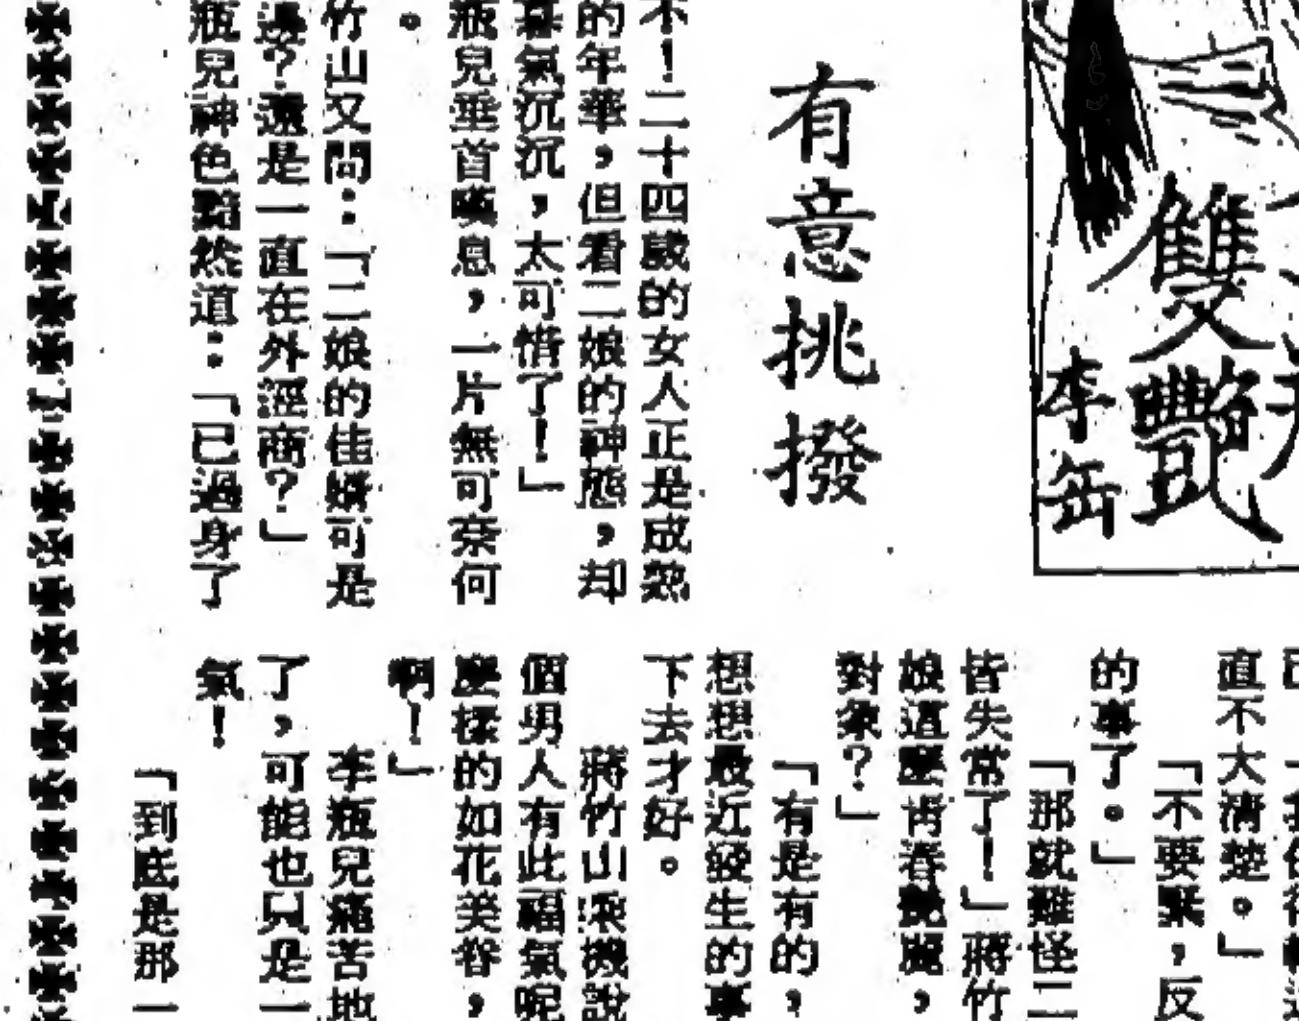 雙艷
李岳
有意挑撥
不！二十四歲的女人正是成熟
的年華，但看二娘的神態，却
暮氣沉沉，太可惜了！」
瓶兒垂首嘆息，一片無可奈何
。
竹山又問：「二娘的佳婿可是
過？還是一直在外經商？」
瓶兒神色黯然道：「已過身了
直不大清楚。」
「不要緊，反
的事了。」
「那就難怪二
皆失常了！」蔣竹
娘這麼青春艷麗，
對象？」
「有是有的，
想想最近發生的事
下去才好。
蔣竹山乘機說
個男人有此福氣呢
麼樣的如花美眷，
啊！」
李瓶兒痛苦地
了，可能也只是一
氣！
「到底是那一